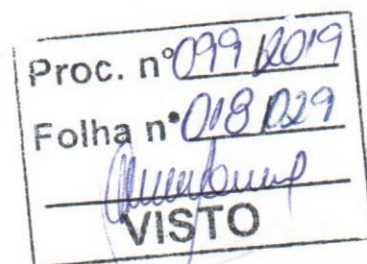 Proc. nº 099/2019
Folha nº 018/029
VISTO